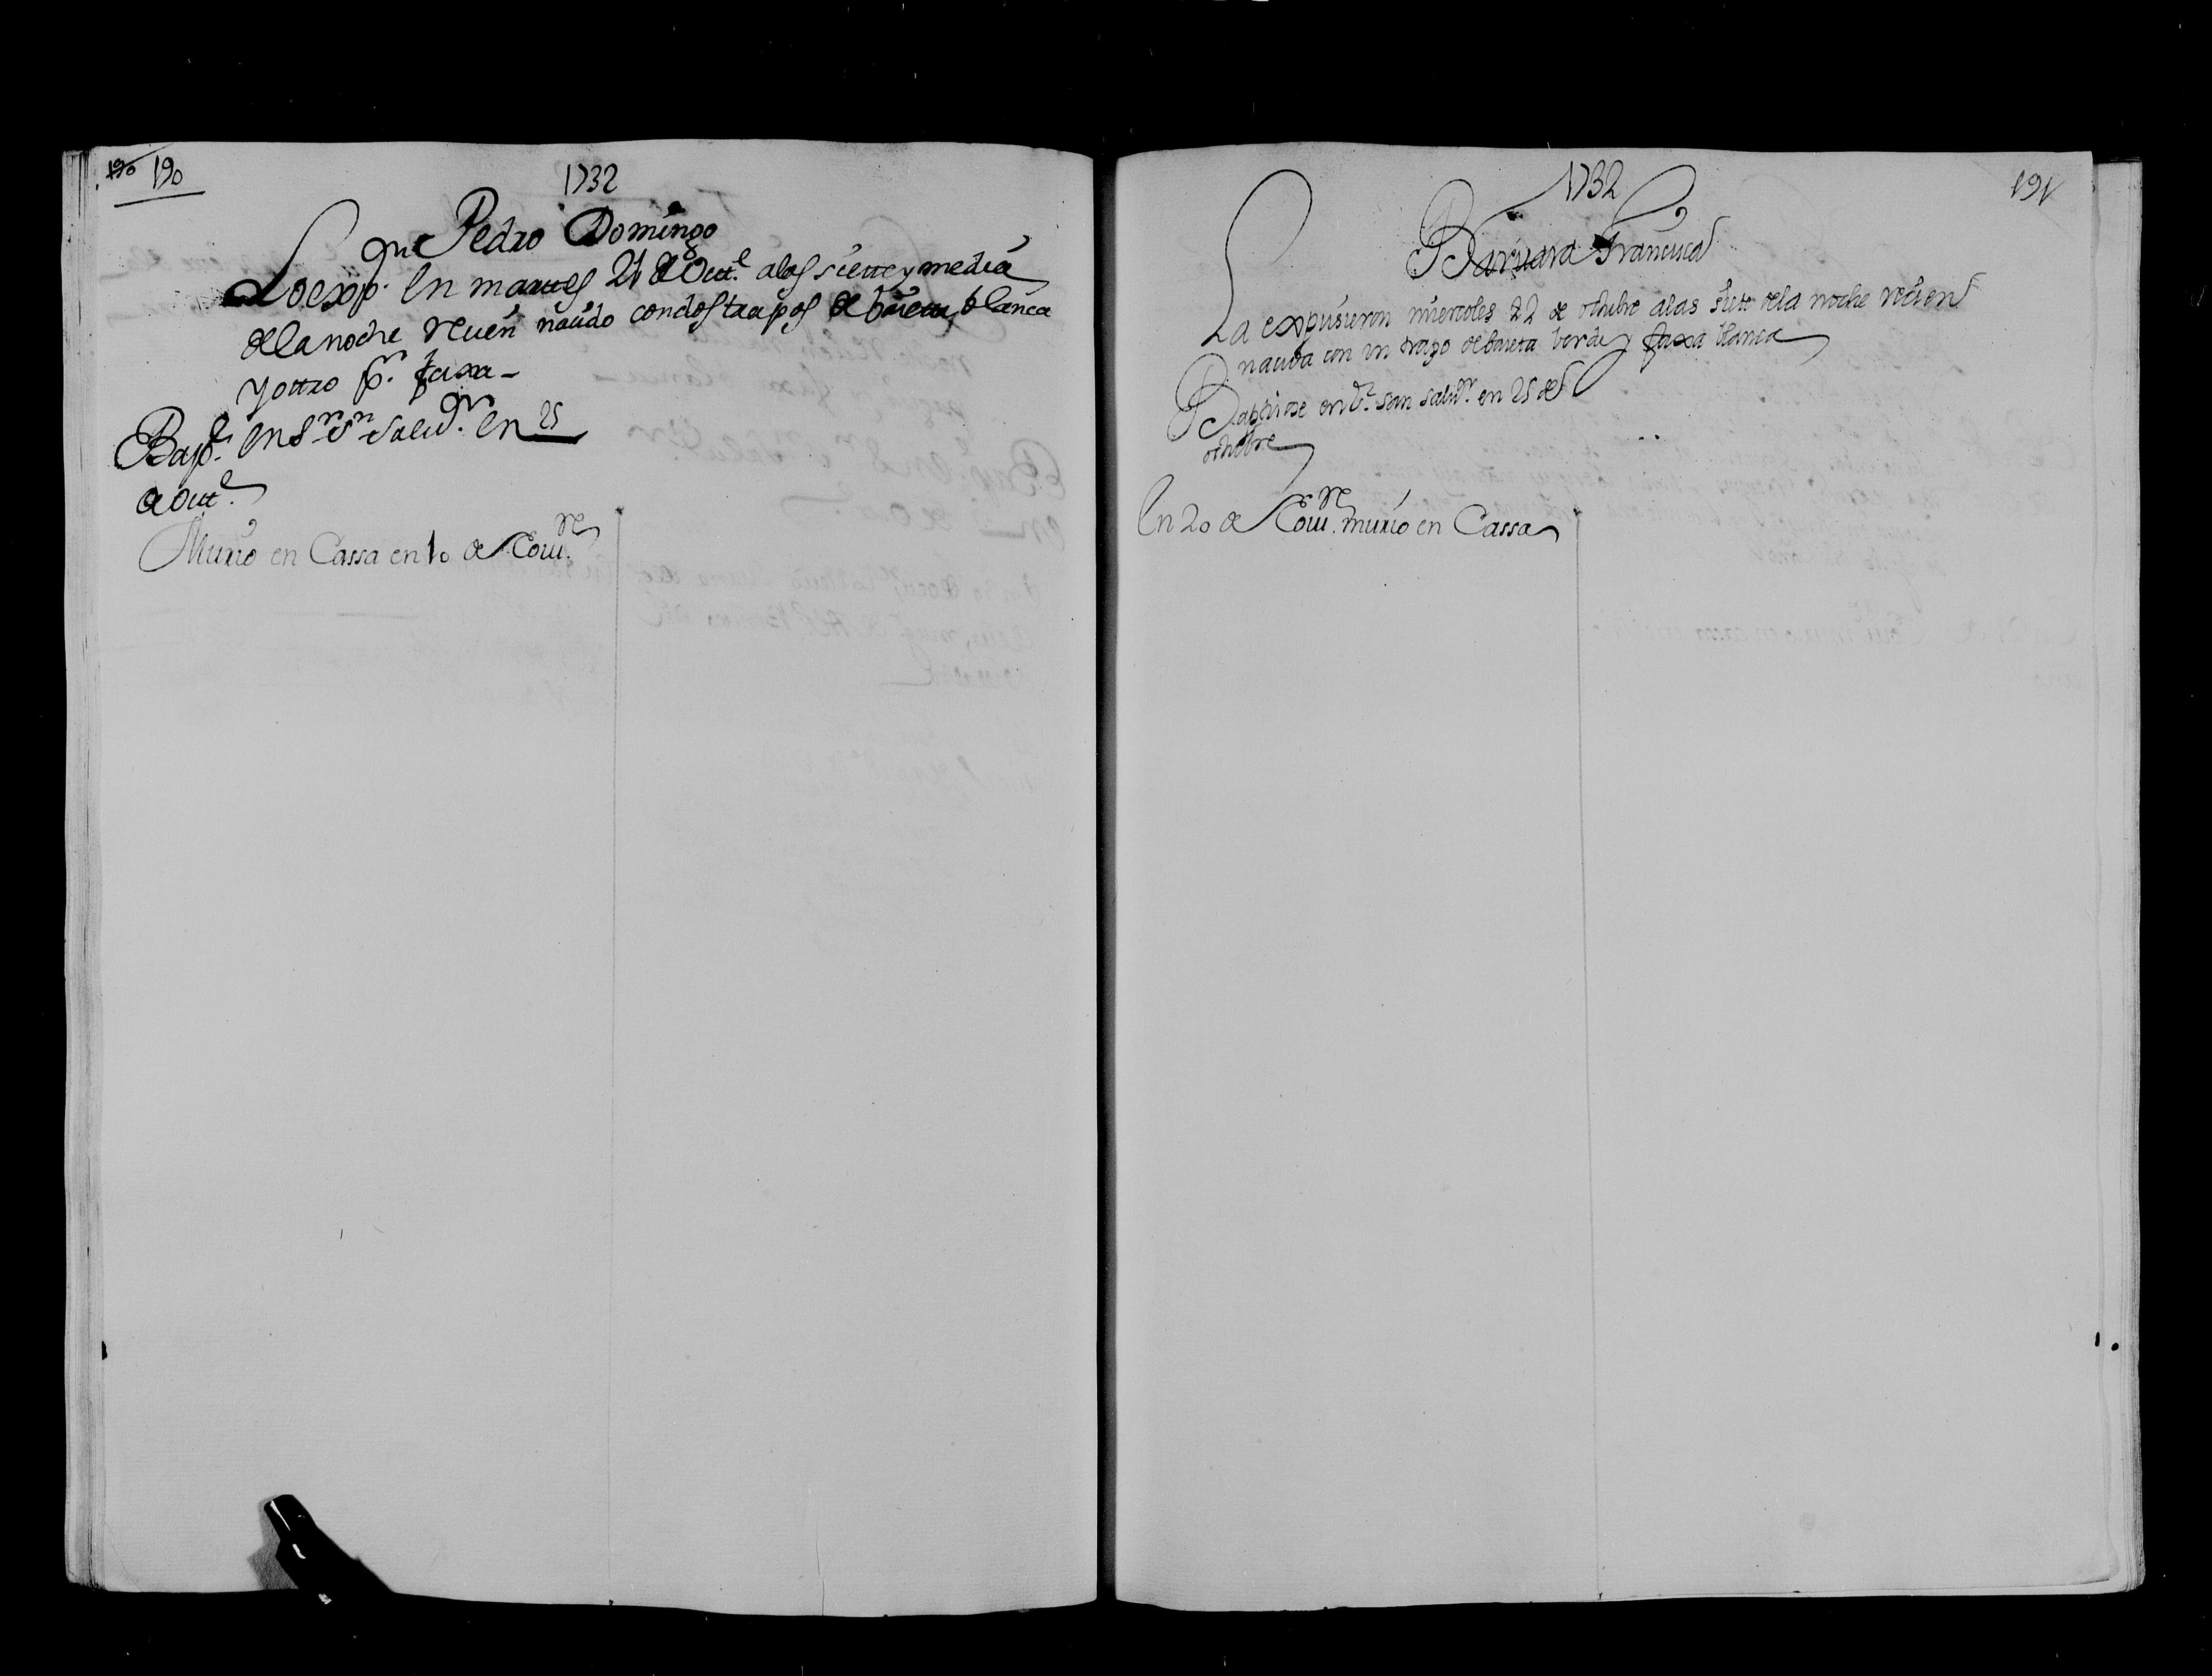 190 190
1732
Pedro Domingo
Lo exp. en martes 21 de Outt.e alas siette y media
de la noche recien nacido con dos trapos de baieta blanca
y ottro pr. faxa
Bapt.e en Sn. Salvr. en 25
de Outt.e
Murio en Cassa en 10 de
1732
191
Barvara Francisca
La expusieron miercoles 22 de octubre alas siete dela noche recien
nacida con un trapo de baieta berde y faxa blanca
Baptizose en san Salvr. en 25 de
octubre
En 20 de murio en Cassa